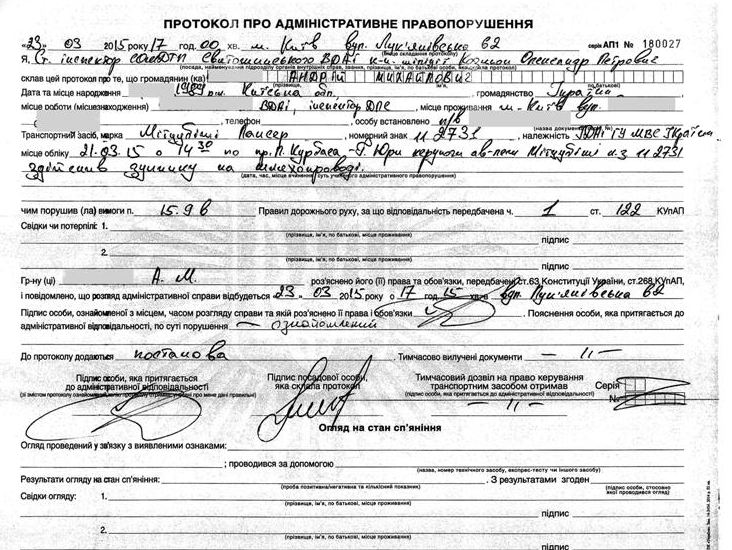 ПРОТОКОЛ ПРО АДМІНІСТРАТИВНЕ ПРАВОПОРУШЕННЯ
«23» 03 2015 року 17 год. 00 хв. м. Київ вул. Лук'янівська 62 серія АП1 № 180027
(місце складання протоколу)
Я, інспектор Святошинського ВДАІ Олександр Петрович
склав цей протокол про те, що громадянин (ка) АНДРІЙ МИХАЙЛОВИЧ
(прізвище, ім'я, по батькові)
Дата та місце народження 1989 р.н. Київська обл. громадянство Україна
Місце роботи (навчання) ВДАІ, інспектор ДПС, місце проживання м. Київ вул.
, телефон , особу встановлено п/в
Транспортний засіб, марка Міцубіші Лансер, номерний знак 11 2731, належність ГУ МВС України
місце обліку 21.03.15 о 14 30 по пр. Л. Курбаса - Г. Юри керуючи Міцубіші н.з 11 2731
здійснив зупинку на шляхопроводі.
(дата, час, місце вчинення та суть адміністративного правопорушення)
чим порушив (ла) вимоги п. 15.9 в Правил дорожнього руху, за що відповідальність передбачена ч. 1 ст. 122 КУпАП
Свідки чи потерпілі: 1.
(прізвище, ім'я, по батькові, місце проживання) підпис
2.
(прізвище, ім'я, по батькові, місце проживання) підпис
Гр-ну (ці) А. М. роз'яснено його (її) права та обов'язки, передбачені ст.63 Конституції України, ст.268 КУпАП,
і повідомлено, що розгляд адміністративної справи відбудеться 23 » 03 2015 року о 17 год. 15 хв. вул. Лук'янівська 62
Підпис особи, ознайомленої з місцем, часом розгляду справи та якій роз'яснено її права і обов'язки . Пояснення особи, яка притягається до
адміністративної відповідальності, по суті порушення – ознайомлений
До протоколу додаються постанова . Тимчасово вилучені документи — 11 —
Підпис особи, яка притягається до адміністративної відповідальності
(зі змістом протоколу ознайомлений)
Підпис посадової особи, яка склала протокол
Тимчасовий дозвіл на право керування транспортним засобом отримав
(підпис особи, яка притягається до адмін. відповідальності)
— 11 —
Серія
№
Огляд на стан сп'яніння
Огляд проведений у зв'язку з виявленими ознаками:
; проводився за допомогою
(назва, номер технічного засобу, експрес-тесту чи іншого засобу)
Результати огляду на стан сп'яніння: . З результатами згоден
(проба позитивна/негативна та кількісний показник) (підпис особи, стосовно якої проводився огляд)
Свідки огляду: 1.
(прізвище, ім'я, по батькові, місце проживання) підпис
2.
(прізвище, ім'я, по батькові, місце проживання) підпис